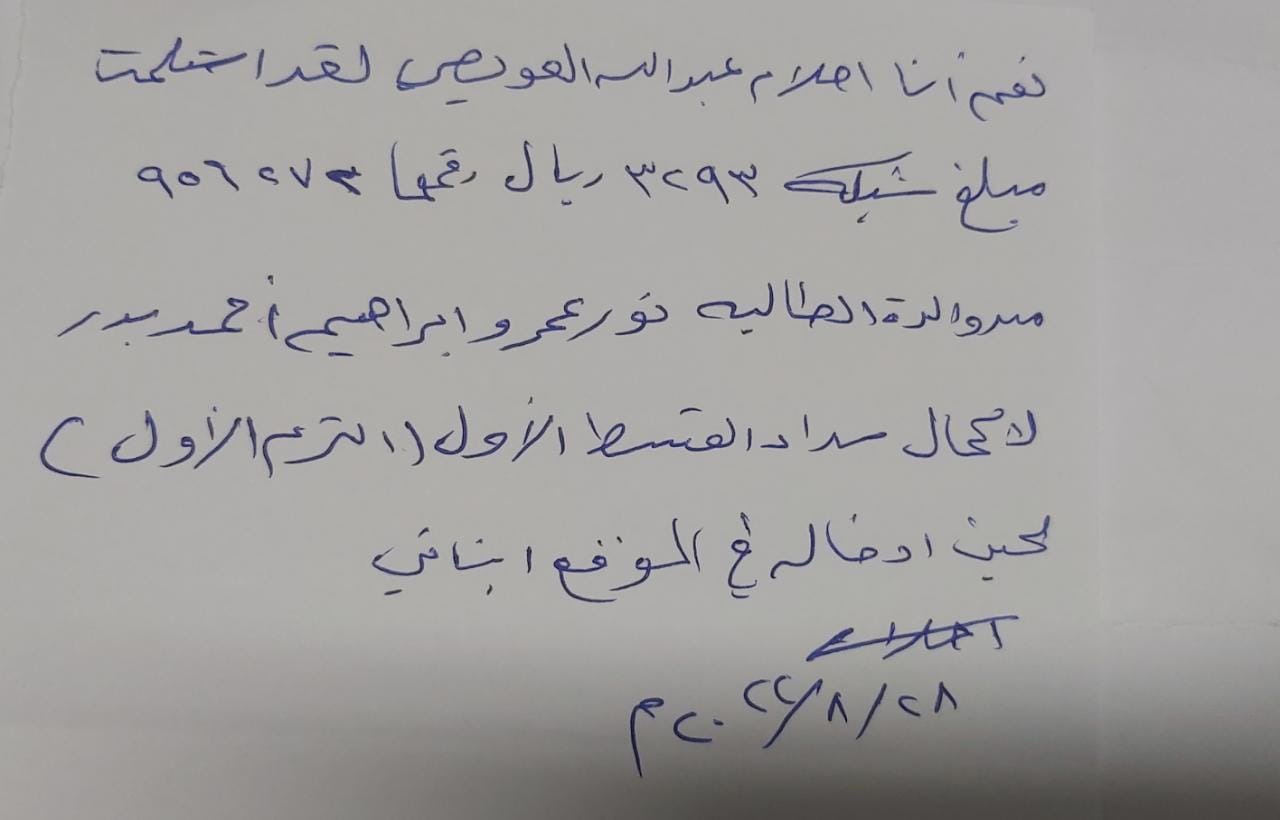 نعم أنا احلام عبدالله العويصي لقد استلمت
مبلغ شبكة ٣٢٩٣ ريال رقمها ٩٥٦٢٧٣
من والدة الطالبه نور عمرو ابراهيم أحمد بدر
لاكمال سداد القسط الأول (الترم الأول)
لحين ادخاله في الموقع ابنائي
احلام
٢٨/٨/٢٠٢٢م